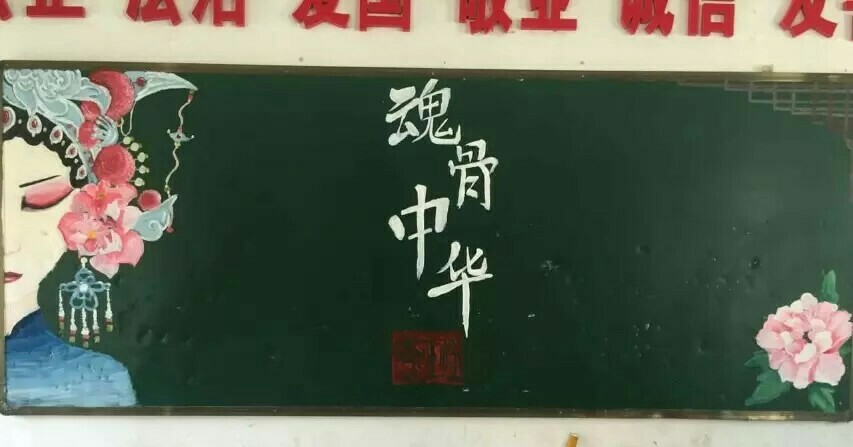 正 法治 爱国 敬业 诚信 友善
魂骨中华